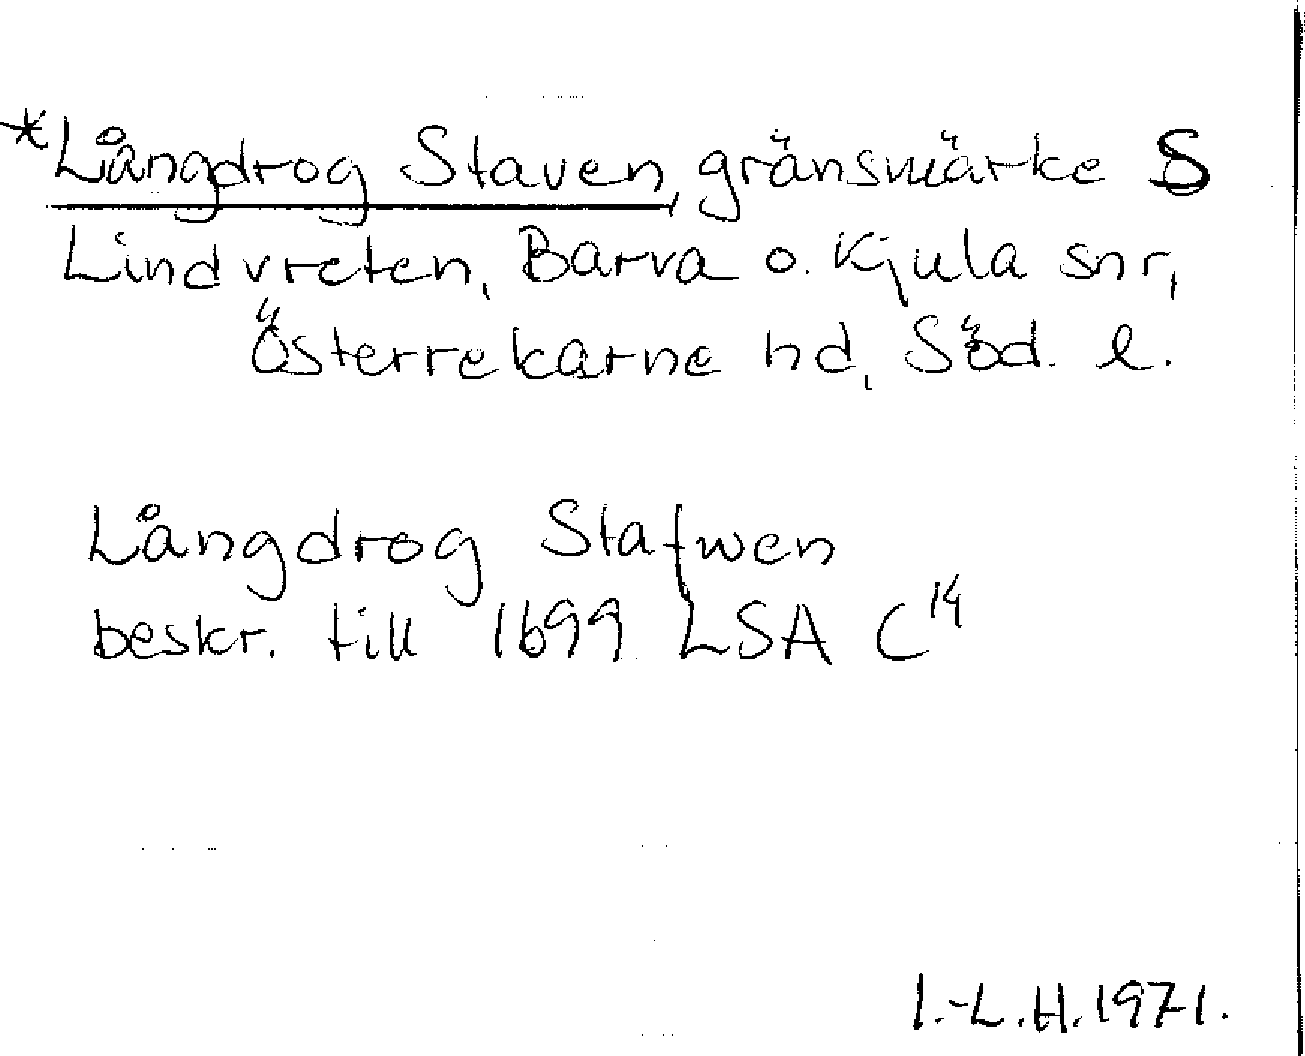 *Långdrog Staven, gränsmärke S
Lindvreten, Barva o. Kjula snr,
Österrekarne hd, Söd. l.
Långdrog Stafwen
beskr. till 1699 LSA C¹⁴
I.-L.H.1971.